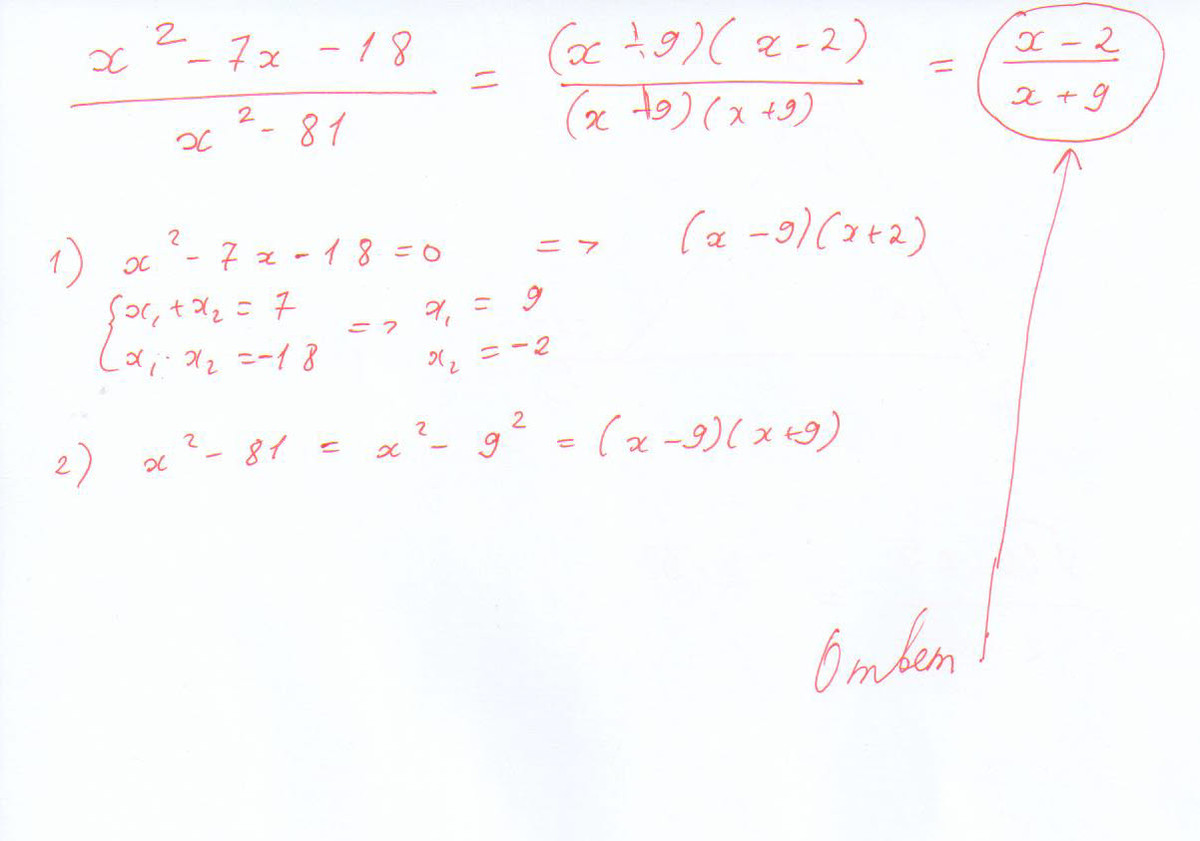 x² - 7x - 18 / x² - 81 = (x - 9)(x - 2) / (x - 9)(x + 9) = x - 2 / x + 9
1) x² - 7x - 18 = 0 => (x - 9)(x + 2)
{ x₁ + x₂ = 7 => x₁ = 9
x₁ · x₂ = -18 x₂ = -2
2) x² - 81 = x² - 9² = (x - 9)(x + 9)
Ответ